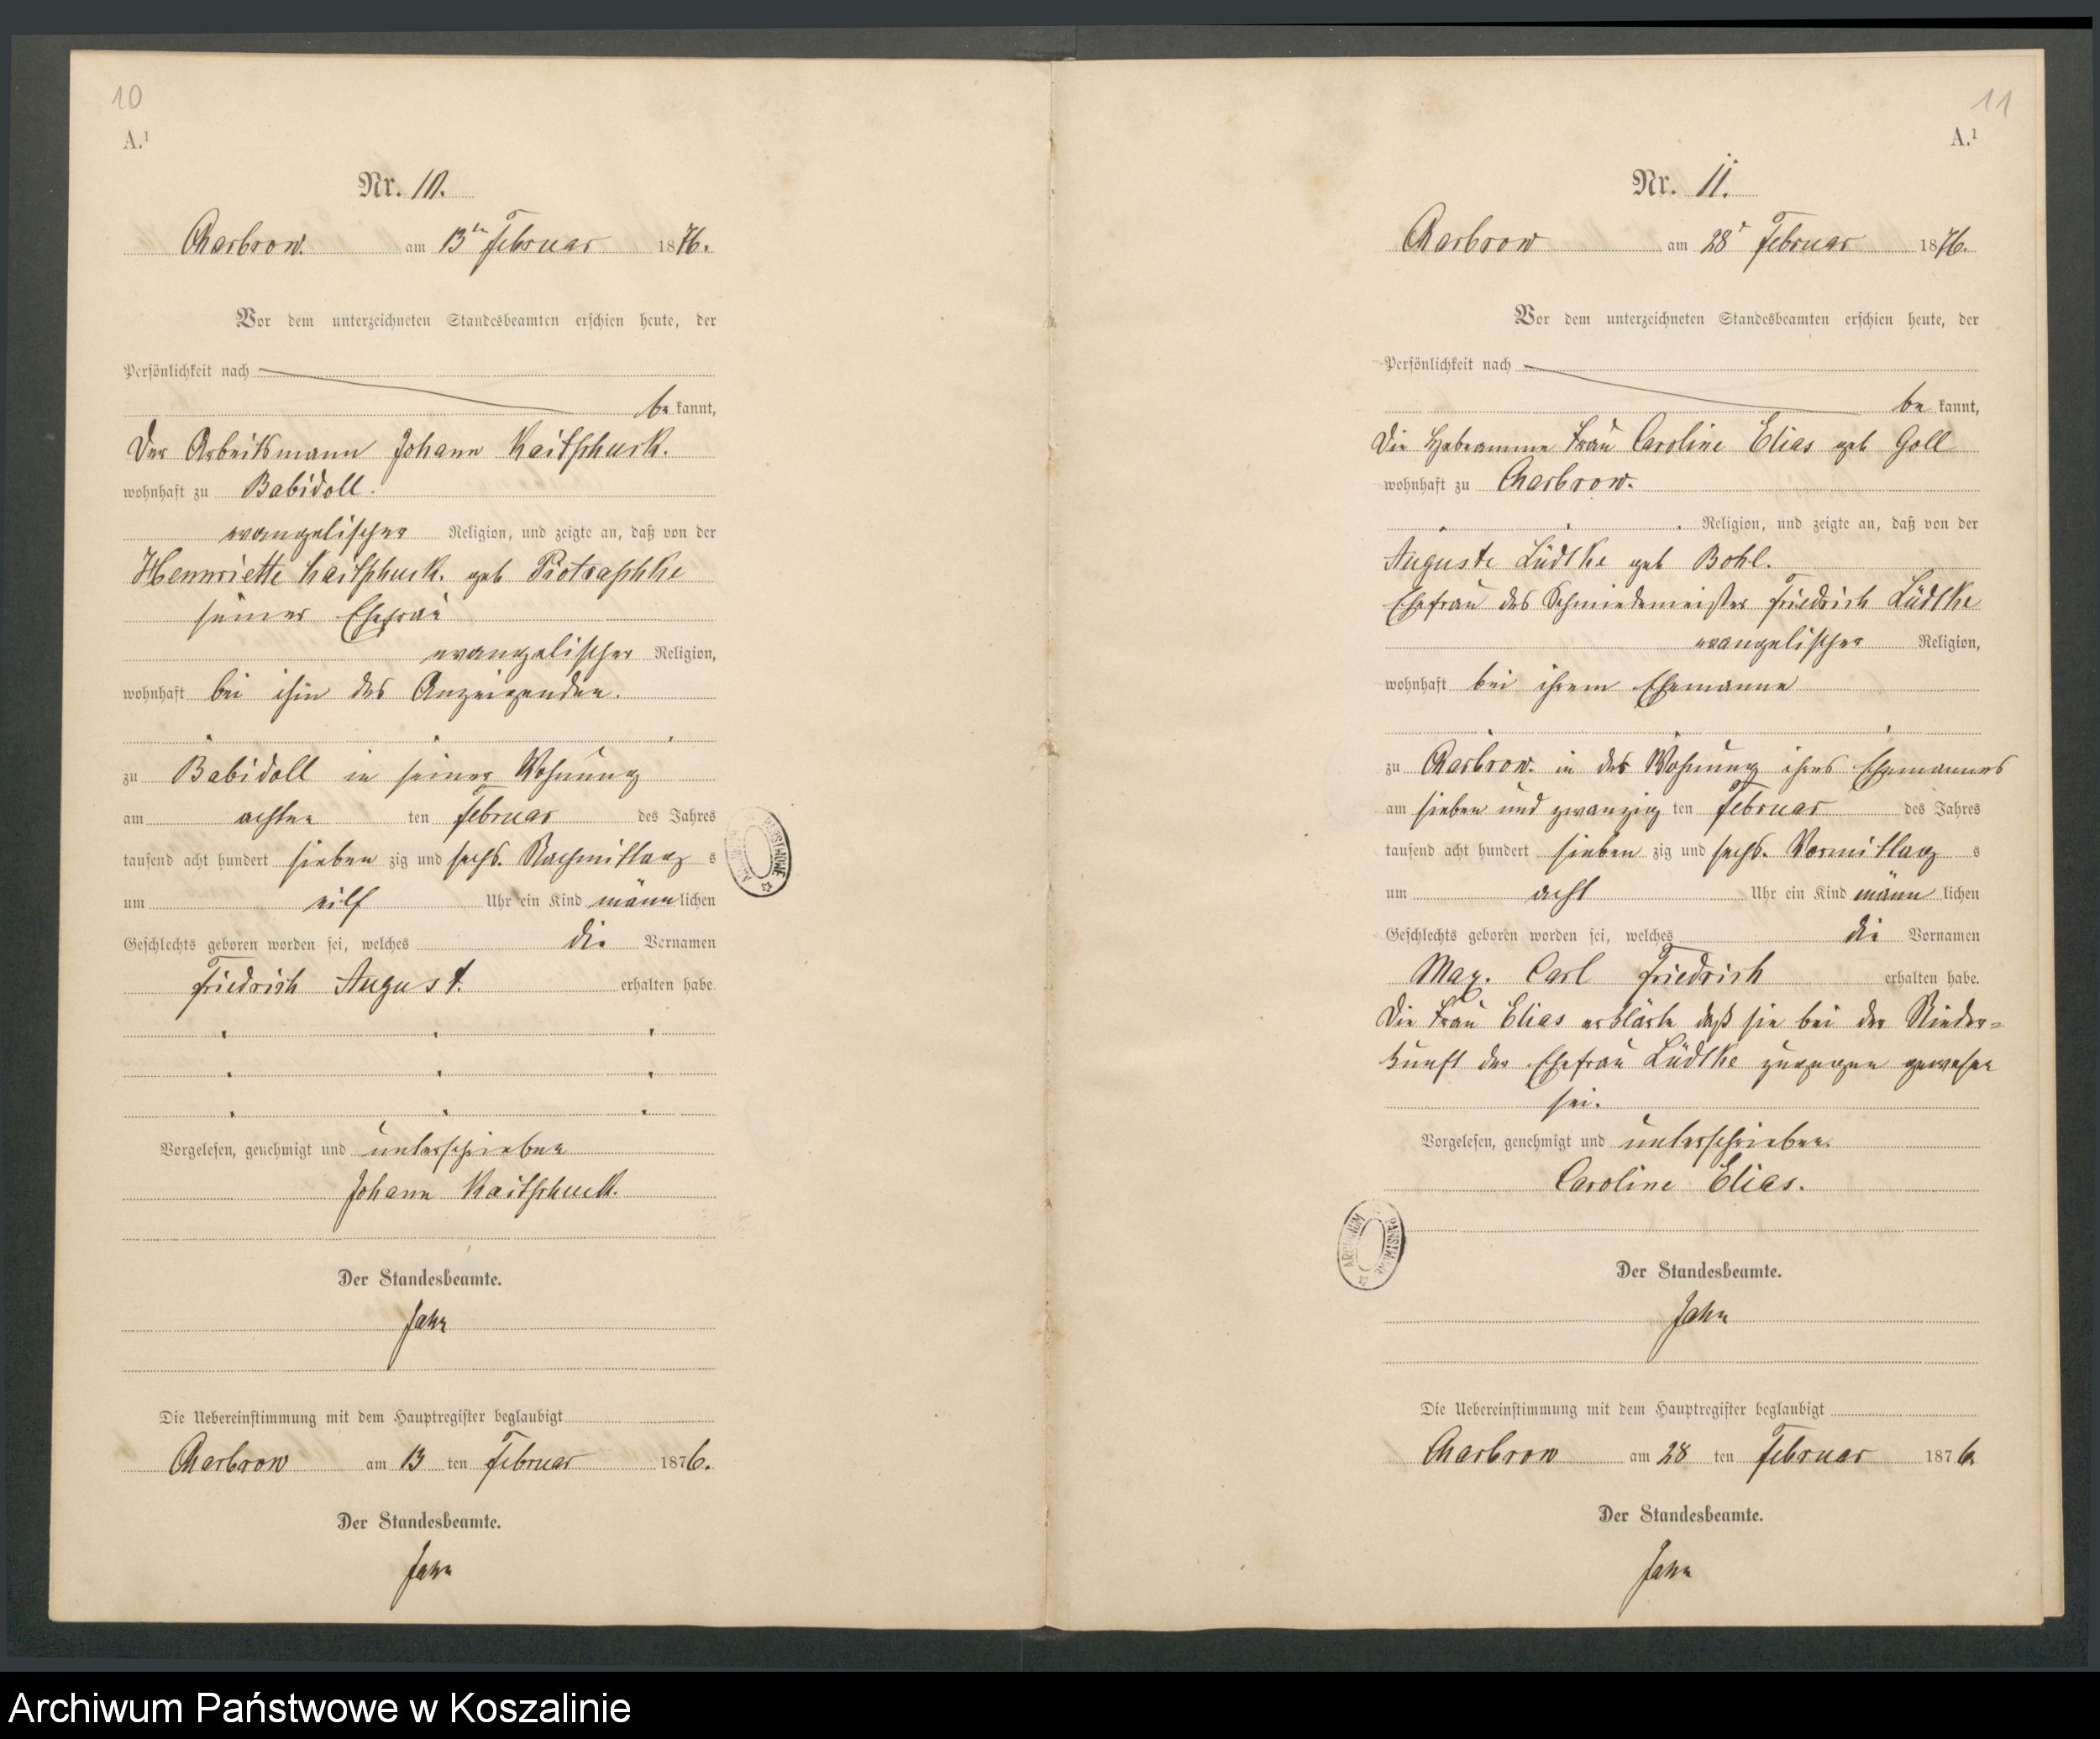 10
A.¹
Nr. 10.
Charbrow. am 13ten Februar 1876.
Vor dem unterzeichneten Standesbeamten erschien heute, der
Persönlichkeit nach
be kannt,
Der Arbeitsmann Johann Kaitschuck.
wohnhaft zu Babidoll.
evangelischer Religion, und zeigte an, daß von der
Hennriette Kaitschuck. geb
seiner Ehefrau
evangelischer Religion,
wohnhaft bei ihm des Anzeigenden.
zu Babidoll in seiner Wohnung
am achten ten Februar des Jahres
tausend acht hundert sieben zig und sechs. Nachmittag s
um eilf Uhr ein Kind männ lichen
Geschlechts geboren worden sei, welches die Vornamen
Friedrich August. erhalten habe
Vorgelesen, genehmigt und unterschrieben
Johann Kaitschuck.
Der Standesbeamte.
Jahn
Die Uebereinstimmung mit dem Hauptregister beglaubigt
Charbrow am 13 ten Februar 1876.
Der Standesbeamte.
Jahn
11
A.¹
Nr. 11.
Charbrow am 28 Februar 1876.
Vor dem unterzeichneten Standesbeamten erschien heute, der
Persönlichkeit nach
be kannt,
Die Hebeamme Frau Caroline Elias geb Goll
wohnhaft zu Charbrow.
Religion, und zeigte an, daß von der
Auguste Lüdtke geb Bohl.
Ehefrau des Schmiedemeister Friedrich Lüdtke
evangelischer Religion,
wohnhaft bei ihrem Ehemanne
zu Charbrow. in der Wohnung ihres Ehemannes
am sieben und zwanzig ten Februar des Jahres
tausend acht hundert sieben zig und sechs. Vormittag s
um acht Uhr ein Kind männ lichen
Geschlechts geboren worden sei, welches die Vornamen
Max. Carl Friedrich erhalten habe.
Die Frau Elias erklärte daß sie bei der Nieder=
kunft der Ehefrau Lüdtke zugegen gewesen
sei.
Vorgelesen, genehmigt und unterschrieben.
Caroline Elias.
Der Standesbeamte.
Jahn
Die Uebereinstimmung mit dem Hauptregister beglaubigt
Charbrow am 28 ten Februar 1876
Der Standesbeamte.
Jahn
Archiwum Państwowe w Koszalinie